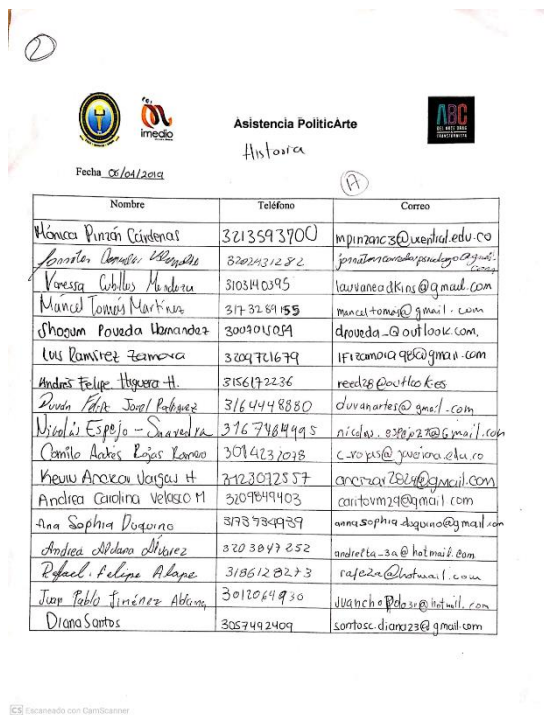 2
imedio
Asistencia PoliticArte
ABC
DEL ARTE DRAG
TRANSFORMISTA
Historia
Fecha 06/04/2019
A
Nombre Teléfono Correo
Mónica Pinzón Cárdenas 3213593700 mpinzonc3@ucentral.edu.co
3202431282
Vanessa Cubillos Mendoza 3103140395 lauvaneadkins@gmail.com
Mancel Tomás Martínez 3173289155 mancel.tomas@gmail.com
Shogum Poveda Hernandez dpoveda_@outlook.com.
Luis Ramírez Zamora 3209721679
Andrés Felipe Higuera H. 3156172236 reed28@outlook.es
Duván Felipe 3164448880 duvanartes@gmail.com
Nicolás Espejo - Saavedra 3167464495 nicolas.espejo27@Gmail.com
Camilo Andrés Rojas Romero 3014232038
Kevin Vargas H 3123072557
Andrea Carolina Velasco M 3209849403 caritovm29@gmail.com
Ana Sophia Duquino annasophia.duquino@gmail.com
Andrea Aldana Álvarez 3203847252 andretta_3a@hotmail.com
Rafael Felipe Alape 3186128273 rafe2a@hotmail.com
Juan Pablo Jiménez 3012064930
Diana Santos 3057492409 santosc.diana23@gmail.com
CS Escaneado con CamScanner